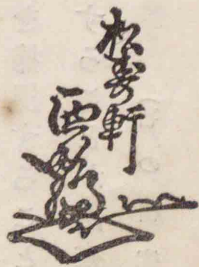 松寿軒
西鶴